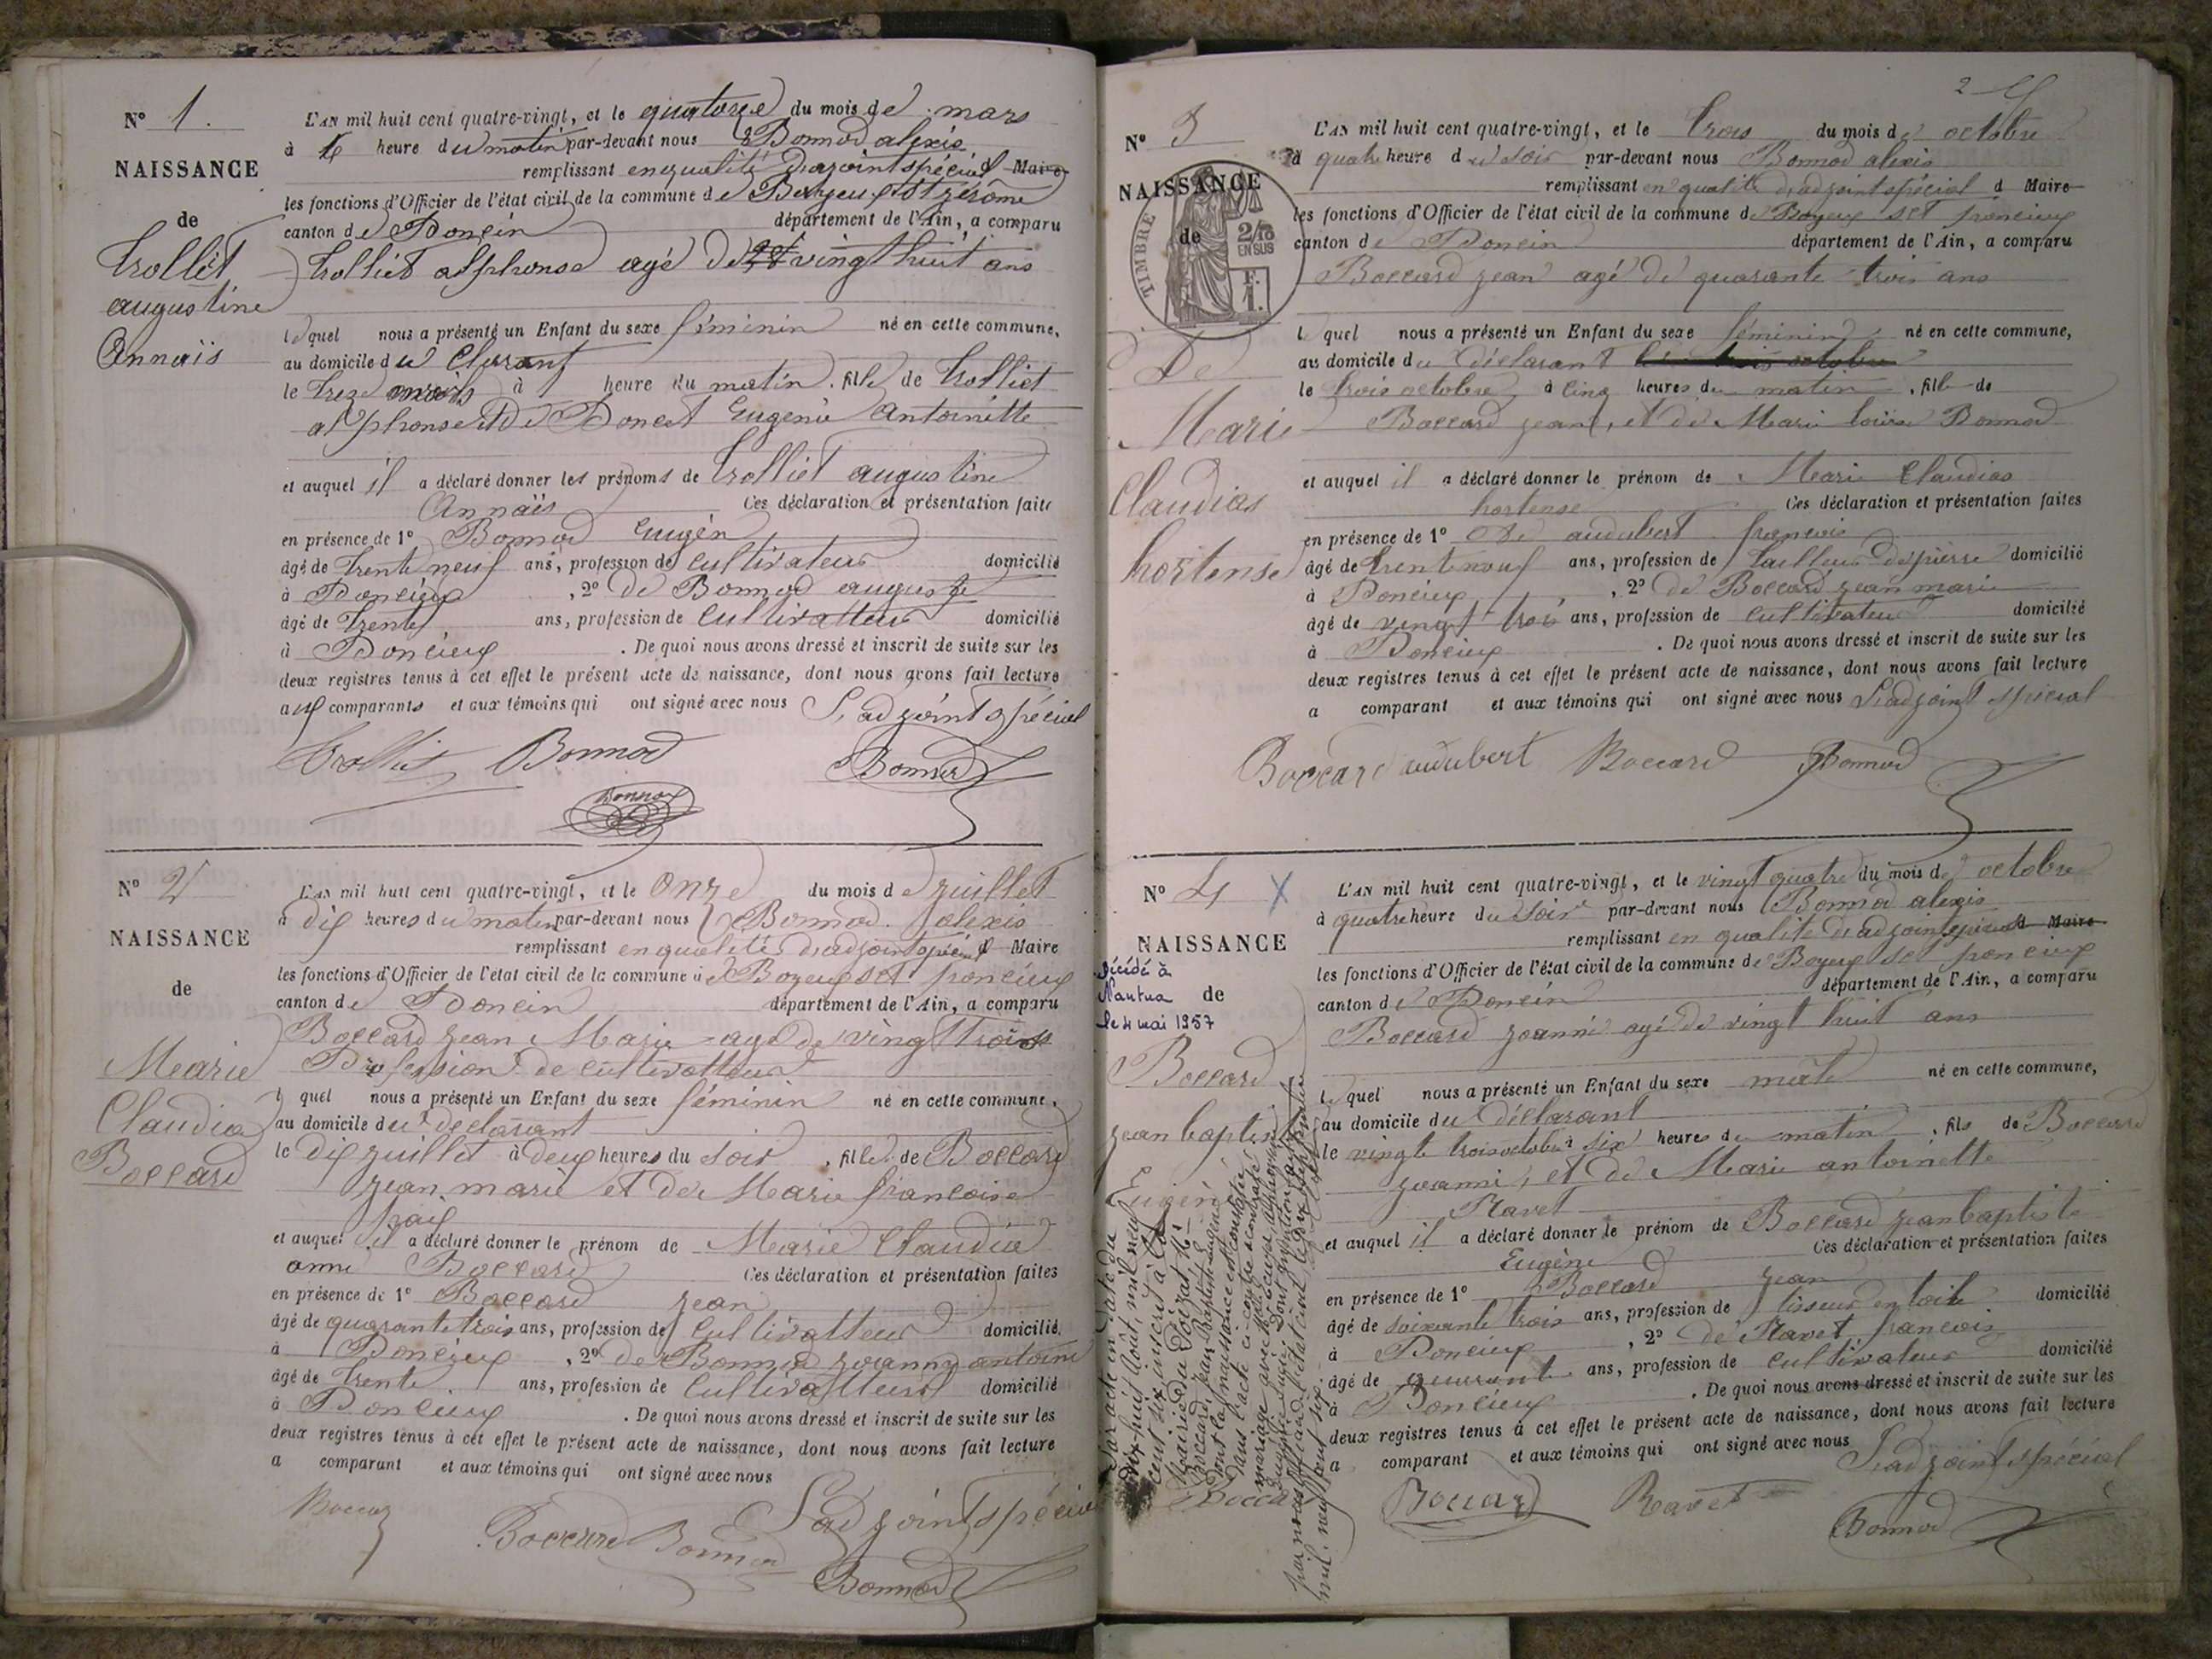 N° 1.
NAISSANCE
de
trolliet
augustine
Annaïs
L'AN mil huit cent quatre-vingt, et le quatorze du mois de mars
à heure du matin par-devant nous Bonnod alexis
remplissant en qualité d'adjoint spécial Maire
les fonctions d'Officier de l'état civil de la commune de Boyeux St jérome
canton de Poncin département de l'Ain, a comparu
trolliet alphonse agé de vingt huit ans
lequel nous a présenté un Enfant du sexe féminin né en cette commune,
au domicile du
le treze mars à heure du matin. fille de trolliet
alphonse et de Poncet Eugenie Antoinette
et auquel il a déclaré donner les prénoms de trolliet augustine
Annaïs Ces déclaration et présentation faite
en présence de 1° Bonnod Eugèn
âgé de trente neuf ans, profession de cultivateur domicilié
à Poncieux, 2° de Bonnod auguste
âgé de trente ans, profession de cultivatteur domicilié
à Poncieux. De quoi nous avons dressé et inscrit de suite sur les
deux registres tenus à cet effet le présent acte de naissance, dont nous avons fait lecture
aux comparants et aux témoins qui ont signé avec nous L'adjoint spécial
trolliet Bonnod Bonnod
Bonnod
N° 2
NAISSANCE
de
Marie
Claudia
Boccard
L'AN mil huit cent quatre-vingt, et le onze du mois de juillet
à dix heures du matin par-devant nous Bonnod alexis
remplissant en qualité d'adjoint spécial Maire
les fonctions d'Officier de l'état civil de la commune de Boyeux set poncieux
canton de Poncin département de l'Ain, a comparu
Boccard jean Marie agé de vingt trois
Profession de cultivatteur
l quel nous a présenté un Enfant du sexe féminin né en cette commune,
au domicile du declarant
le dix juillet à deux heures du soir, fille de Boccard
jean marie et de Marie françoise
et auquel il a déclaré donner le prénom de Marie Claudia
anne Boccard Ces déclaration et présentation faites
en présence de 1° Boccard jean
âgé de quarante trois ans, profession de cultivatteur domicilié
à Poncieux, 2° de Bonnod joanny antoine
âgé de trente ans, profession de cultivatteur domicilié
à Poncieux. De quoi nous avons dressé et inscrit de suite sur les
deux registres tenus à cet effet le présent acte de naissance, dont nous avons fait lecture
a comparant et aux témoins qui ont signé avec nous
L'adjoint spécial
Boccard Boccard Bonnod
Bonnod
2
N° 3
NAISSANCE
de
TIMBRE
2/10
EN SUS
F.
1.
De
Marie
Claudias
hortense
L'AN mil huit cent quatre-vingt, et le trois du mois de octobre
à quatre heure du soir par-devant nous Bonnod alexis
remplissant en qualité d'adjoint spécial d Maire
les fonctions d'Officier de l'état civil de la commune de Boyeux set poncieux
canton de Poncin département de l'Ain, a comparu
Boccard jean agé de quarante trois ans
l quel nous a présenté un Enfant du sexe féminin né en cette commune,
au domicile du déclarant le trois octobre
le trois octobre à cinq heures du matin, fille de
Boccard jean, et de Marie louise Bonnod
et auquel il a déclaré donner le prénom de Marie Claudias
hortense Ces déclaration et présentation faites
en présence de 1° De audubert francois
âgé de trente nouf ans, profession de tailleur de pierre domicilié
à Poncieux, 2° de Boccard jean marie
âgé de vingt trois ans, profession de cultivateur domicilié
à Poncieux. De quoi nous avons dressé et inscrit de suite sur les
deux registres tenus à cet effet le présent acte de naissance, dont nous avons fait lecture
a comparant et aux témoins qui ont signé avec nous L'adjoint spécial
Boccard audubert Boccard Bonnod
N° 4 X
NAISSANCE
de
Décédé à
Nantua
le 4 mai 1957
Boccard
jean baptiste
Eugené
L'AN mil huit cent quatre-vingt, et le vingt quatre du mois de octobre
à quatre heure du soir par-devant nous Bonnod alexis
remplissant en qualité d'adjoint spécial d Maire
les fonctions d'Officier de l'état civil de la commune de Boyeux set poncieux
canton de Poncin département de l'Ain, a comparu
Boccard joanni agé de vingt huit ans
lequel nous a présenté un Enfant du sexe mâle né en cette commune,
au domicile du déclarant
le vingt trois octobre à six heures du matin, fils de Boccard
joanni, et de Marie antoinette
Ravet
et auquel il a déclaré donner le prénom de Boccard jean baptiste
Eugène Ces déclaration et présentation faites
en présence de 1° Boccard jean
âgé de soixante trois ans, profession de tisseur en toile domicilié
à Poncieux, 2° de Ravet francois
âgé de quarante ans, profession de cultivateur domicilié
à Poncieux. De quoi nous avons dressé et inscrit de suite sur les
deux registres tenus à cet effet le présent acte de naissance, dont nous avons fait lecture
a comparant et aux témoins qui ont signé avec nous L'adjoint spécial
Boccard Boccard Ravet Bonnod
Par acte en date du
dix-huit Août, mil neuf
cent six inscrit à la
Mairie du
Boccard, Jean Baptiste Eugène
dont la naissance est constatée
dans l'acte ci-contre a contracté
mariage avec